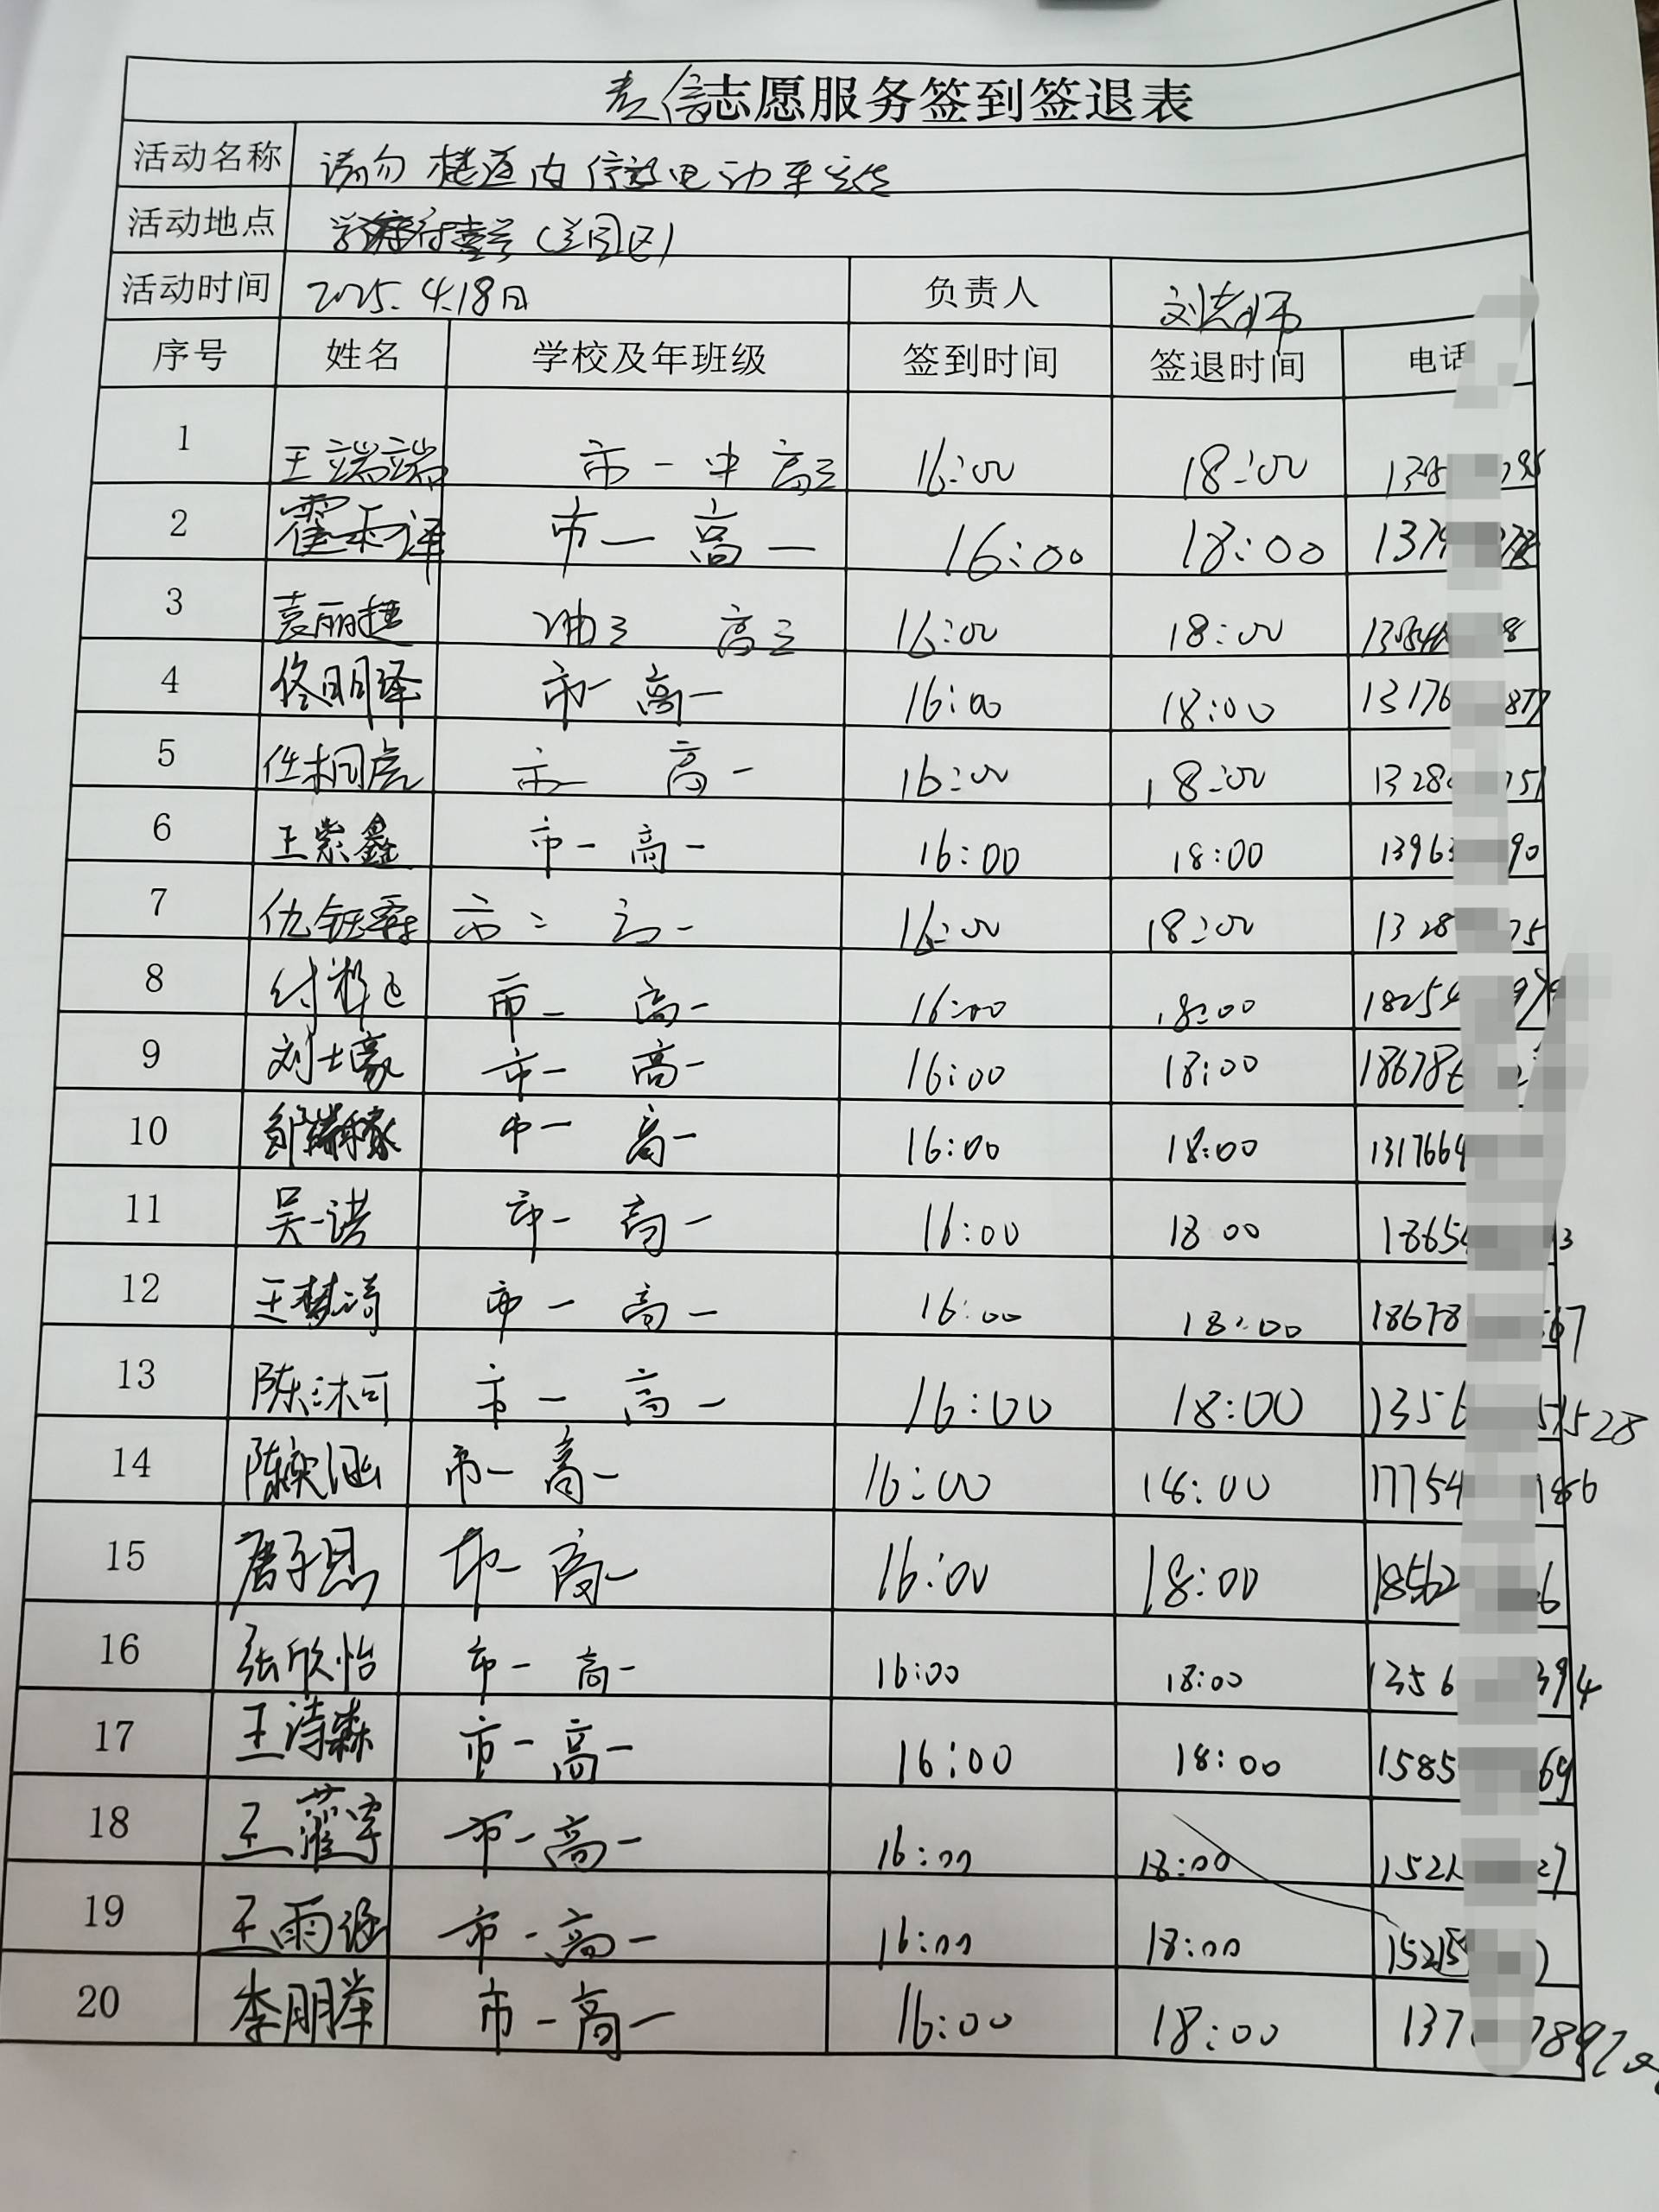 志愿服务签到签退表
活动名称 请勿楼道内停放电动车宣传
活动地点 学府壹号(兰园区)
活动时间 2025.4.18日 负责人 刘老师
序号 姓名 学校及年班级 签到时间 签退时间 电话
1 王端端 市一中高三 16:00 18:00
2 霍雨译 市一 高一 16:00 18:00 1379
3 袁丽捷 高三 16:00 18:00
4 佟明泽 市一 高一 16:00 18:00 13176 877
5 任桐虎 市一 高一 16:00 18:00 1328 751
6 王紫鑫 市一 高一 16:00 18:00 1396 90
7 仇钰霖 市二 高一 16:00 18:00 1328 75
8 市一 高一 16:00 18:00 18254
9 刘士豪 市一 高一 16:00 18:00 186786
10 邹瑞稼 市一 高一 16:00 18:00 1317664
11 吴一诺 市一 高一 16:00 18 00 18654 3
12 王梦涛 市一 高一 16:00 18:00 18678 67
13 陈沐可 市一 高一 16:00 18:00 1356 51528
14 陈奕涵 市一 高一 16:00 18:00 17754 1866
15 唐子思 市一 高一 16:00 18:00 18562 6
16 张欣怡 市一 高一 16:00 18:00 1356 394
17 王诗森 市一 高一 16:00 18:00 1585 69
18 王 宇 市一高一 16:00 18:00 1521 27
19 王雨涵 市一高一 16:00 18:00 15215
20 李朋泽 市一高一 16:00 18:00 137 7897